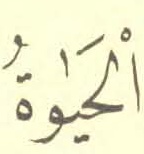 الْحَيَوٰةُ